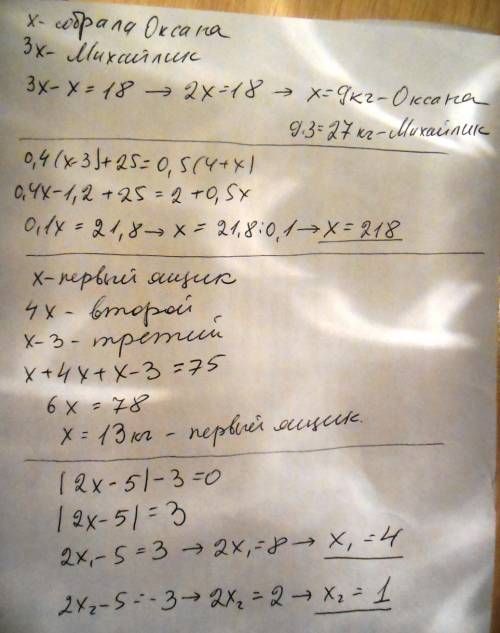 x - собрала Оксана
3x - Михайлик
3x - x = 18 → 2x = 18 → x = 9кг - Оксана
9·3 = 27 кг - Михайлик
0,4(x-3)+25 = 0,5(4+x)
0,4x - 1,2 + 25 = 2 + 0,5x
0,1x = 21,8 → x = 21,8 : 0,1 → x = 218
x - первый ящик
4x - второй
x - 3 - третий
x + 4x + x - 3 = 75
6x = 78
x = 13кг - первый ящик.
|2x - 5| - 3 = 0
|2x - 5| = 3
2x₁ - 5 = 3 → 2x₁ = 8 → x₁ = 4
2x₂ - 5 = -3 → 2x₂ = 2 → x₂ = 1